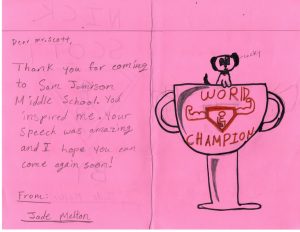 Dear mr.Scott,
Thank you for coming
to Sam Jamison
Middle School. You
inspired me. Your
Speech was amazing
and I hope you can
come again soon!
From:
Jade Melton
WORD
CHAMPION